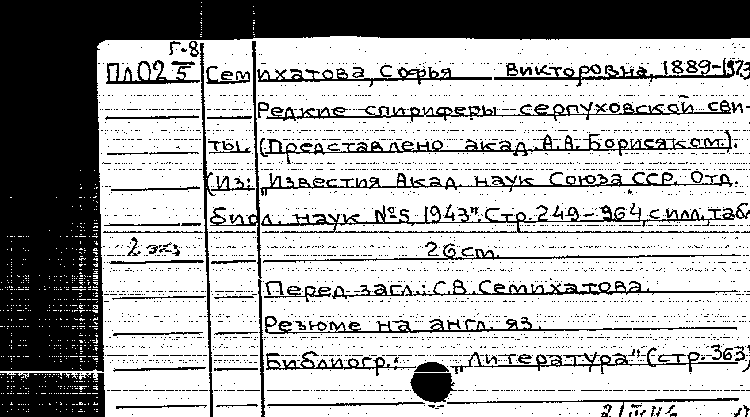 Г-8
Пл02 5 Семихатова, Софья Викторовна, 1889-1973
Редкие спириферы серпуховской сви-
ты. (Представлено акад. А.А. Борисяком).
(Из: „Известия Акад. наук Союза ССР. Отд.
биол. наук №5, 1943". Стр. 249-964, с илл., табл
2 экз 26 cm.
Перед загл.: С.В. Семихатова.
Резюме на англ. яз.
Библиогр.: „Литература" (стр. 363)